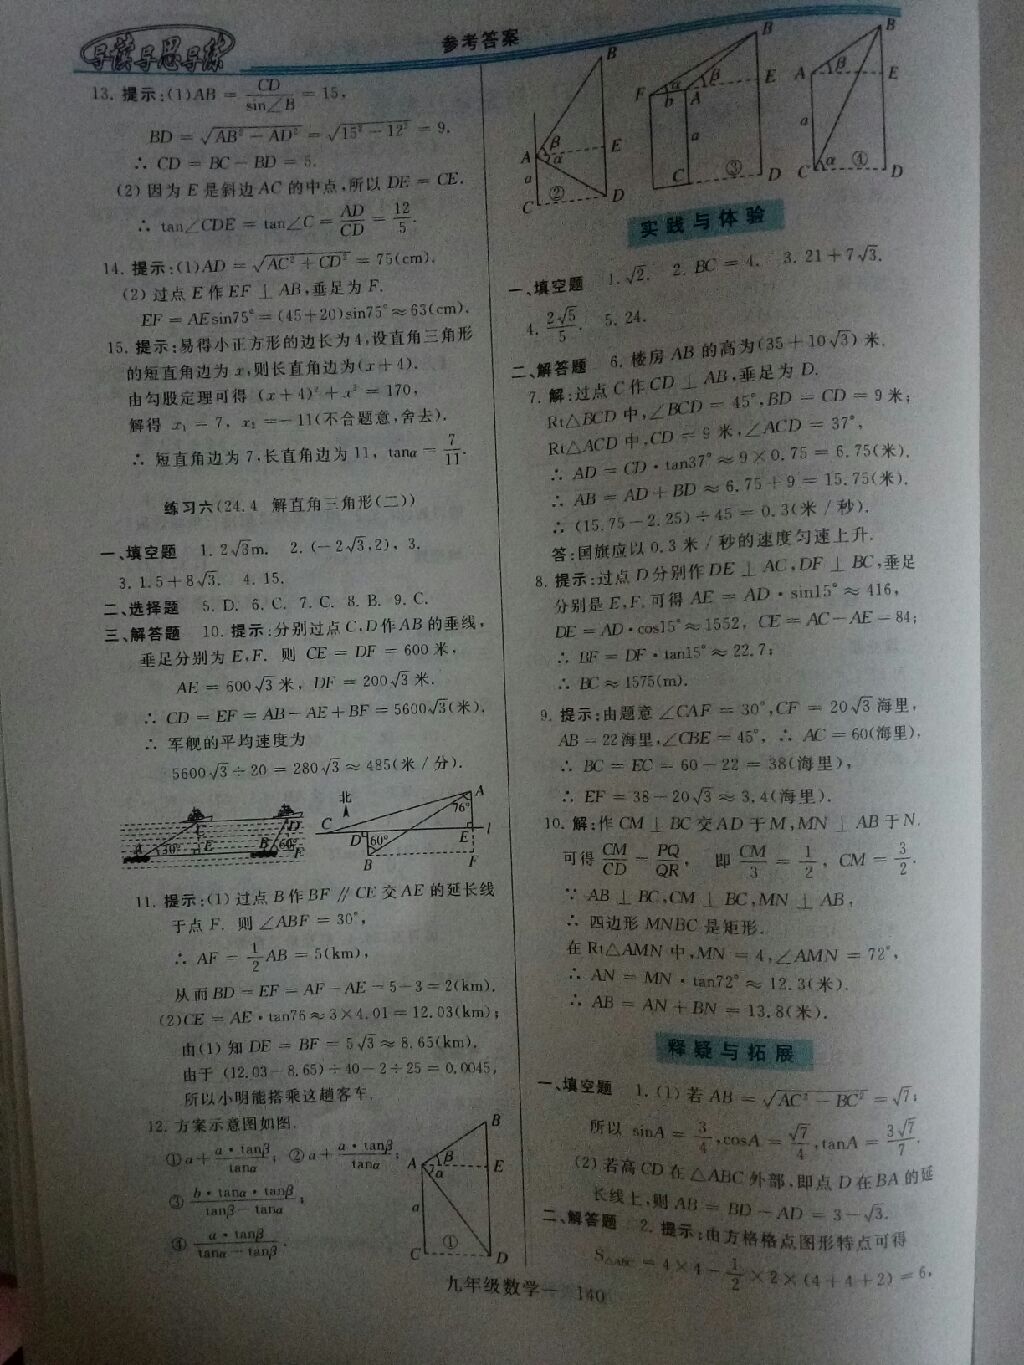 导读导思导练
参考答案
13. 提示:(1)AB = CD/sin∠B = 15,
BD = √(AB² − AD²) = √(15² − 12²) = 9.
∴ CD = BC − BD = 5.
(2)因为 E 是斜边 AC 的中点,所以 DE = CE.
∴ tan∠CDE = tan∠C = AD/CD = 12/5.
14. 提示:(1)AD = √(AC² + CD²) = 75(cm).
(2) 过点 E 作 EF ⊥ AB,垂足为 F.
EF = AEsin75° = (45+20)sin75° ≈ 63(cm).
15. 提示:易得小正方形的边长为 4,设直角三角形
的短直角边为 x,则长直角边为(x+4).
由勾股定理可得 (x+4)² + x² = 170,
解得 x₁ = 7, x₂ = −11(不合题意,舍去).
∴ 短直角边为 7,长直角边为 11, tanα = 7/11.
练习六(24.4 解直角三角形(二))
一、填空题 1. 2√3m. 2. (−2√3,2), 3.
3. 1.5+8√3. 4. 15.
二、选择题 5. D. 6. C. 7. C. 8. B. 9. C.
三、解答题 10. 提示:分别过点 C,D 作 AB 的垂线,
垂足分别为 E,F. 则 CE = DF = 600 米,
AE = 600√3 米, DF = 200√3 米.
∴ CD = EF = AB − AE + BF = 5600√3(米).
∴ 军舰的平均速度为
5600√3 ÷ 20 = 280√3 ≈ 485(米/分).
A 30° E B D 60° F
北 C D 60° B A 76° E F l
11. 提示:(1) 过点 B 作 BF ∥ CE 交 AE 的延长线
于点 F. 则 ∠ABF = 30°,
∴ AF = 1/2 AB = 5(km),
从而 BD = EF = AF − AE = 5 − 3 = 2(km).
(2)CE = AE·tan76 ≈ 3×4.01 = 12.03(km);
由(1) 知 DE = BF = 5√3 ≈ 8.65(km).
由于 (12.03 − 8.65) ÷ 40 − 2 ÷ 25 = 0.0045,
所以小明能搭乘这趟客车.
12. 方案示意图如图.
①a + a·tanβ/tanα; ②a + a·tanβ/tanα;
③ b·tanα·tanβ/(tanβ − tanα);
④ a·tanβ/(tanα − tanβ).
A B C D E a α β ①
A B C D E a α β ②
F B A E C D b a β ③
A B C D E a α β ④
实践与体验
一、填空题 1. √2. 2. BC = 4. 3. 21+7√3.
4. 2√5/5. 5. 24.
二、解答题 6. 楼房 AB 的高为(35+10√3) 米.
7. 解:过点 C 作 CD ⊥ AB,垂足为 D.
Rt△BCD 中,∠BCD = 45°,BD = CD = 9 米;
Rt△ACD 中,CD = 9 米,∠ACD = 37°,
∴ AD = CD·tan37° ≈ 9×0.75 = 6.75(米).
∴ AB = AD + BD ≈ 6.75 + 9 = 15.75(米).
∴ (15.75 − 2.25) ÷ 45 = 0.3(米/秒).
答:国旗应以 0.3 米/秒的速度匀速上升.
8. 提示:过点 D 分别作 DE ⊥ AC,DF ⊥ BC,垂足
分别是 E,F. 可得 AE = AD·sin15° ≈ 416,
DE = AD·cos15° ≈ 1552, CE = AC − AE = 84;
∴ BF = DF·tan15° ≈ 22.7;
∴ BC ≈ 1575(m).
9. 提示:由题意 ∠CAF = 30°,CF = 20√3 海里,
AB = 22 海里,∠CBE = 45°, ∴ AC = 60(海里),
∴ BC = EC = 60 − 22 = 38(海里),
∴ EF = 38 − 20√3 ≈ 3.4(海里).
10. 解:作 CM ⊥ BC 交 AD 于 M,MN ⊥ AB 于 N.
可得 CM/CD = PQ/QR, 即 CM/3 = 1/2, CM = 3/2.
∵ AB ⊥ BC,CM ⊥ BC,MN ⊥ AB,
∴ 四边形 MNBC 是矩形.
在 Rt△AMN 中,MN = 4,∠AMN = 72°,
∴ AN = MN·tan72° ≈ 12.3(米).
∴ AB = AN + BN = 13.8(米).
释疑与拓展
一、填空题 1. (1) 若 AB = √(AC² − BC²) = √7;
所以 sinA = 3/4,cosA = √7/4,tanA = 3√7/7.
(2) 若高 CD 在 △ABC 外部,即点 D 在 BA 的延
长线上,则 AB = BD − AD = 3 − √3.
二、解答题 2. 提示:由方格格点图形特点可得
S△ABC = 4×4 − 1/2 × 2 × (4+4+2) = 6,
九年级数学— 140